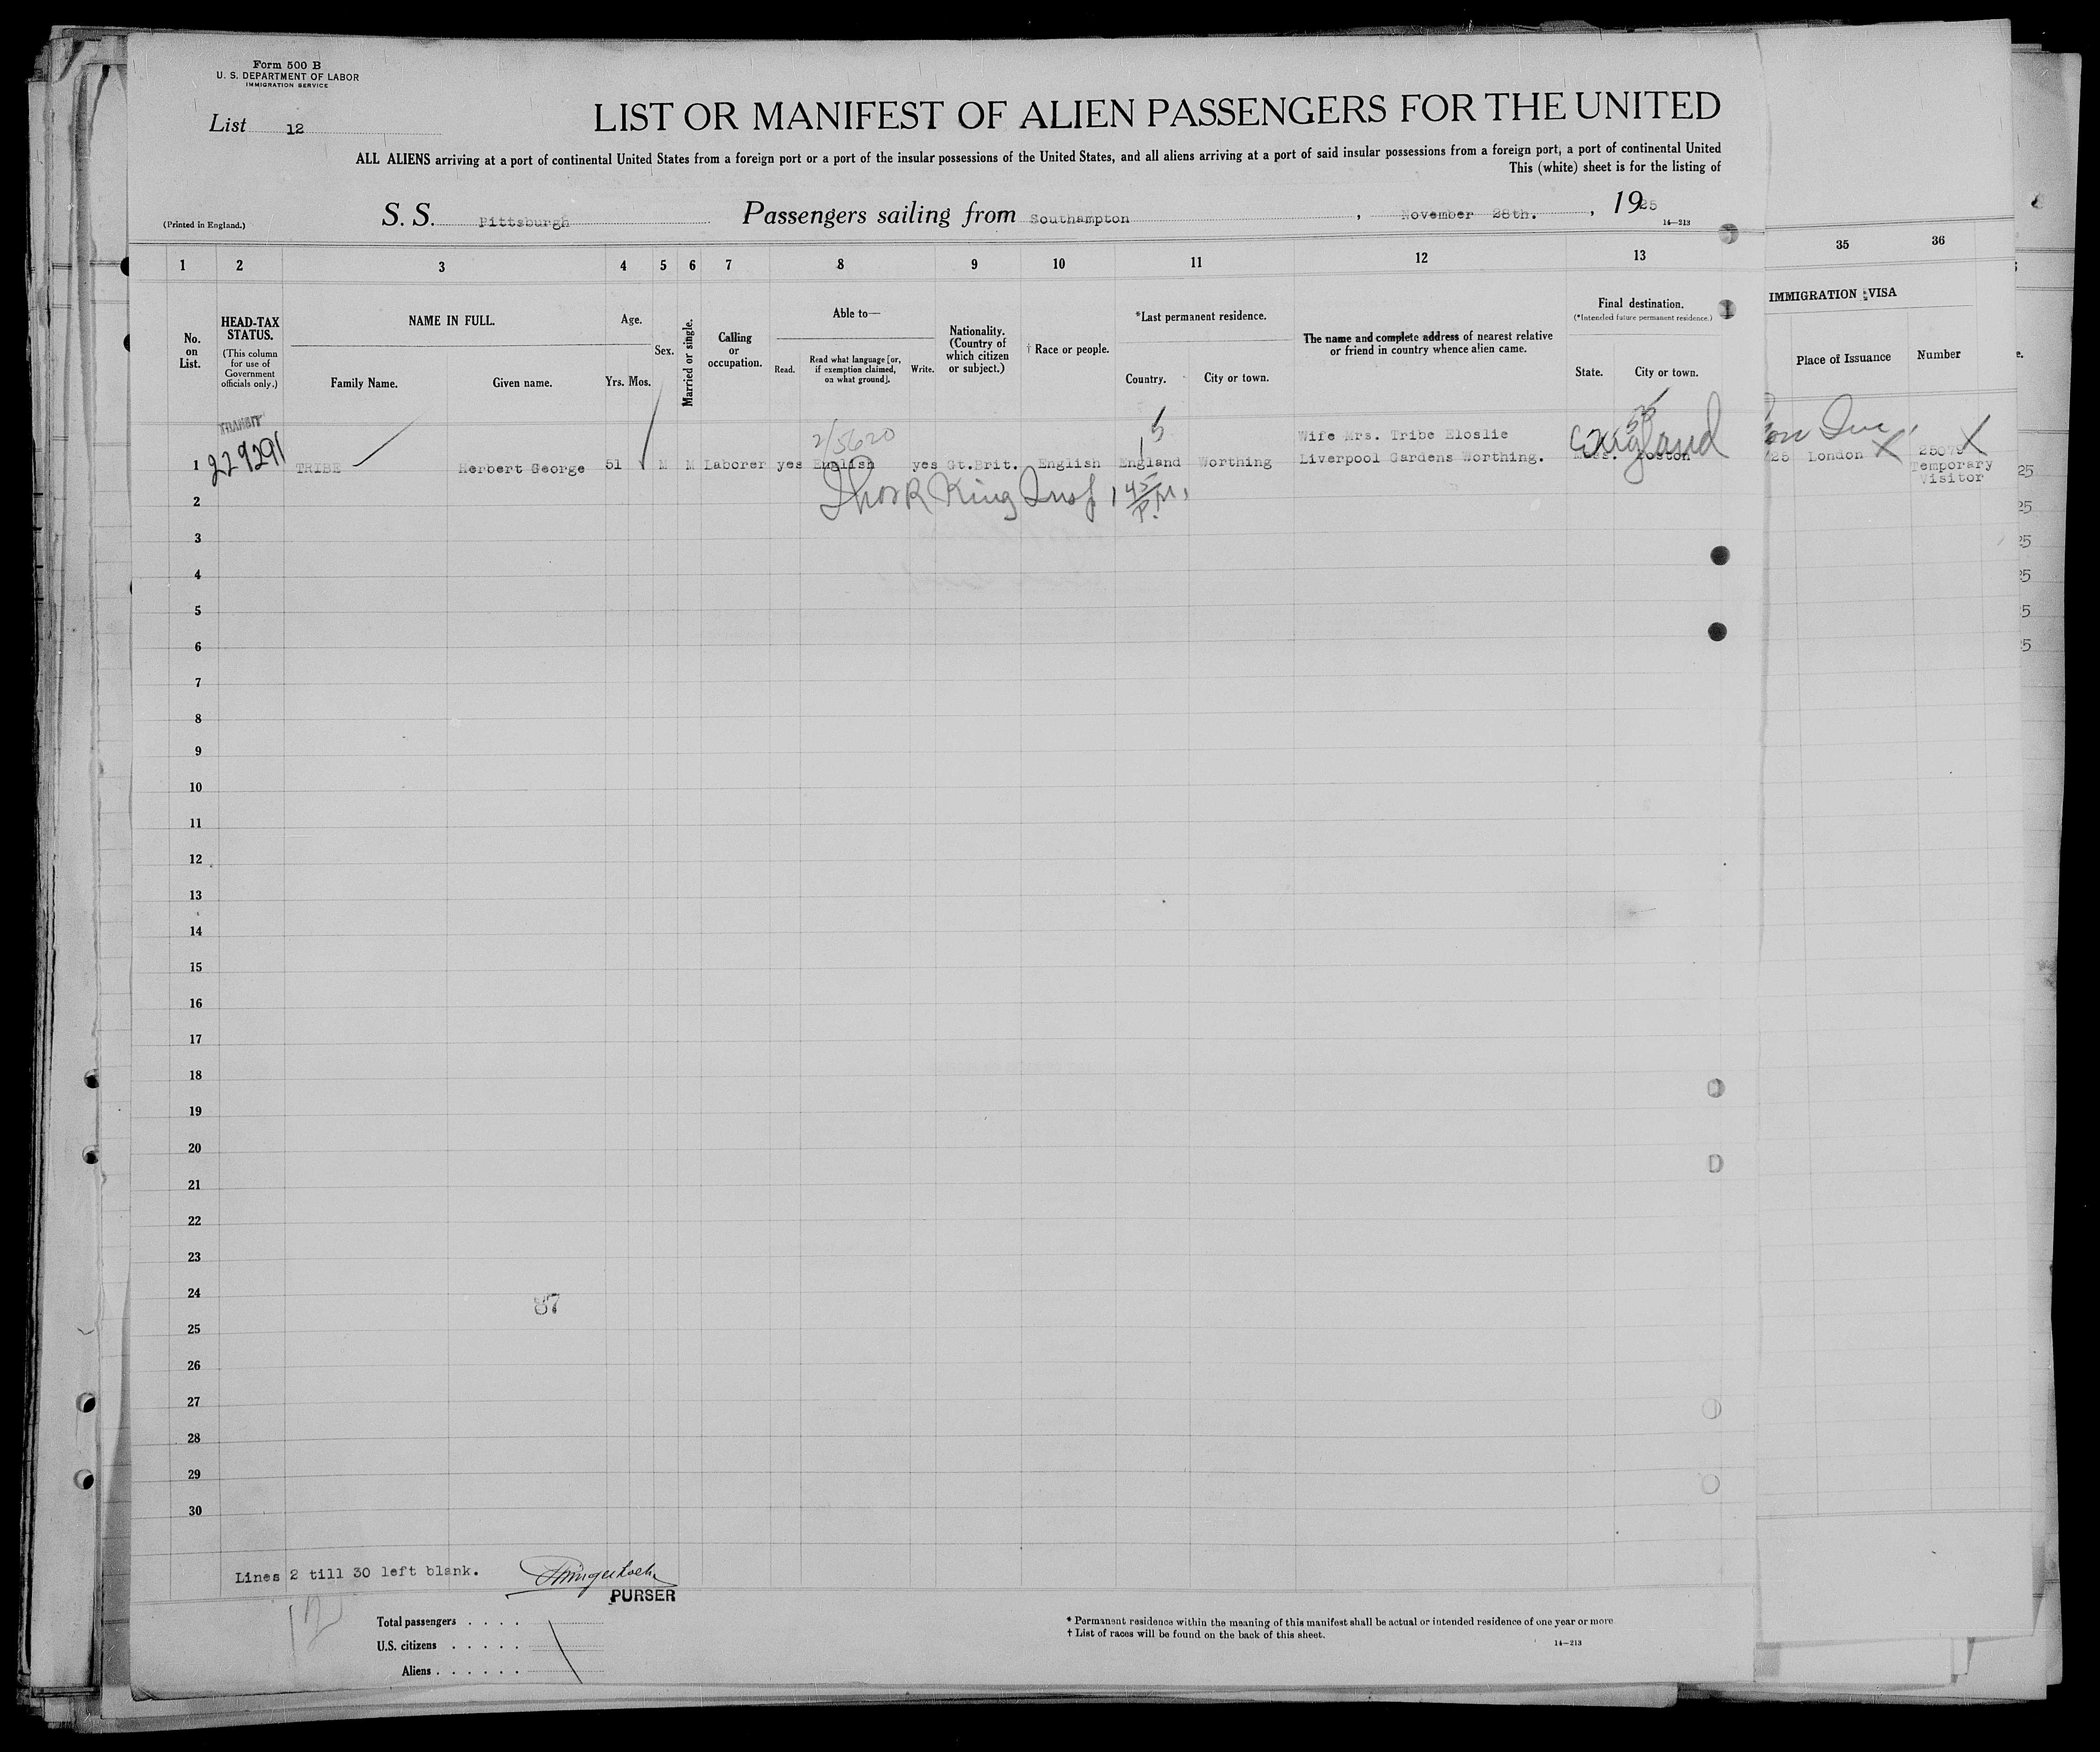 Form 500 B
U. S. DEPARTMENT OF LABOR
IMMIGRATION SERVICE
List 12
LIST OR MANIFEST OF ALIEN PASSENGERS FOR THE UNITED
ALL ALIENS arriving at a port of continental United States from a foreign port or a port of the insular possessions of the United States, and all aliens arriving at a port of said insular possessions from a foreign port, a port of continental United
This (white) sheet is for the listing of
(Printed in England.)
S. S. Pittsburgh Passengers sailing from Southampton, November 28th., 1925
14—213
1 2 3 4 5 6 7 8 9 10 11 12 13 35 36
No. on List.
HEAD-TAX STATUS.
(This column for use of Government officials only.)
NAME IN FULL.
Family Name. Given name.
Age.
Yrs. Mos.
Sex.
Married or single.
Calling or occupation.
Able to—
Read. Read what language [or, if exemption claimed, on what ground]. Write.
Nationality. (Country of which citizen or subject.)
† Race or people.
*Last permanent residence.
Country. City or town.
The name and complete address of nearest relative or friend in country whence alien came.
Final destination.
(*Intended future permanent residence.)
State. City or town.
IMMIGRATION VISA
Place of Issuance Number
TRANSIT
229291
2/5620
Wife Mrs. Tribe Eloslie
England
1 TRIBE Herbert George 51 M M Laborer yes English yes Gt.Brit. English England Worthing Liverpool Gardens Worthing. Mass. Boston 25 London 25079
Temporary
Visitor
King Insp 1 45 P.M.
2
3
4
5
6
7
8
9
10
11
12
13
14
15
16
17
18
19
20
21
22
23
24
87
25
26
27
28
29
30
Lines 2 till 30 left blank.
PURSER
12
Total passengers . . . .
U.S. citizens . . . . .
Aliens . . . . . .
* Permanent residence within the meaning of this manifest shall be actual or intended residence of one year or more.
† List of races will be found on the back of this sheet.
14—213
25
25
25
25
5
5